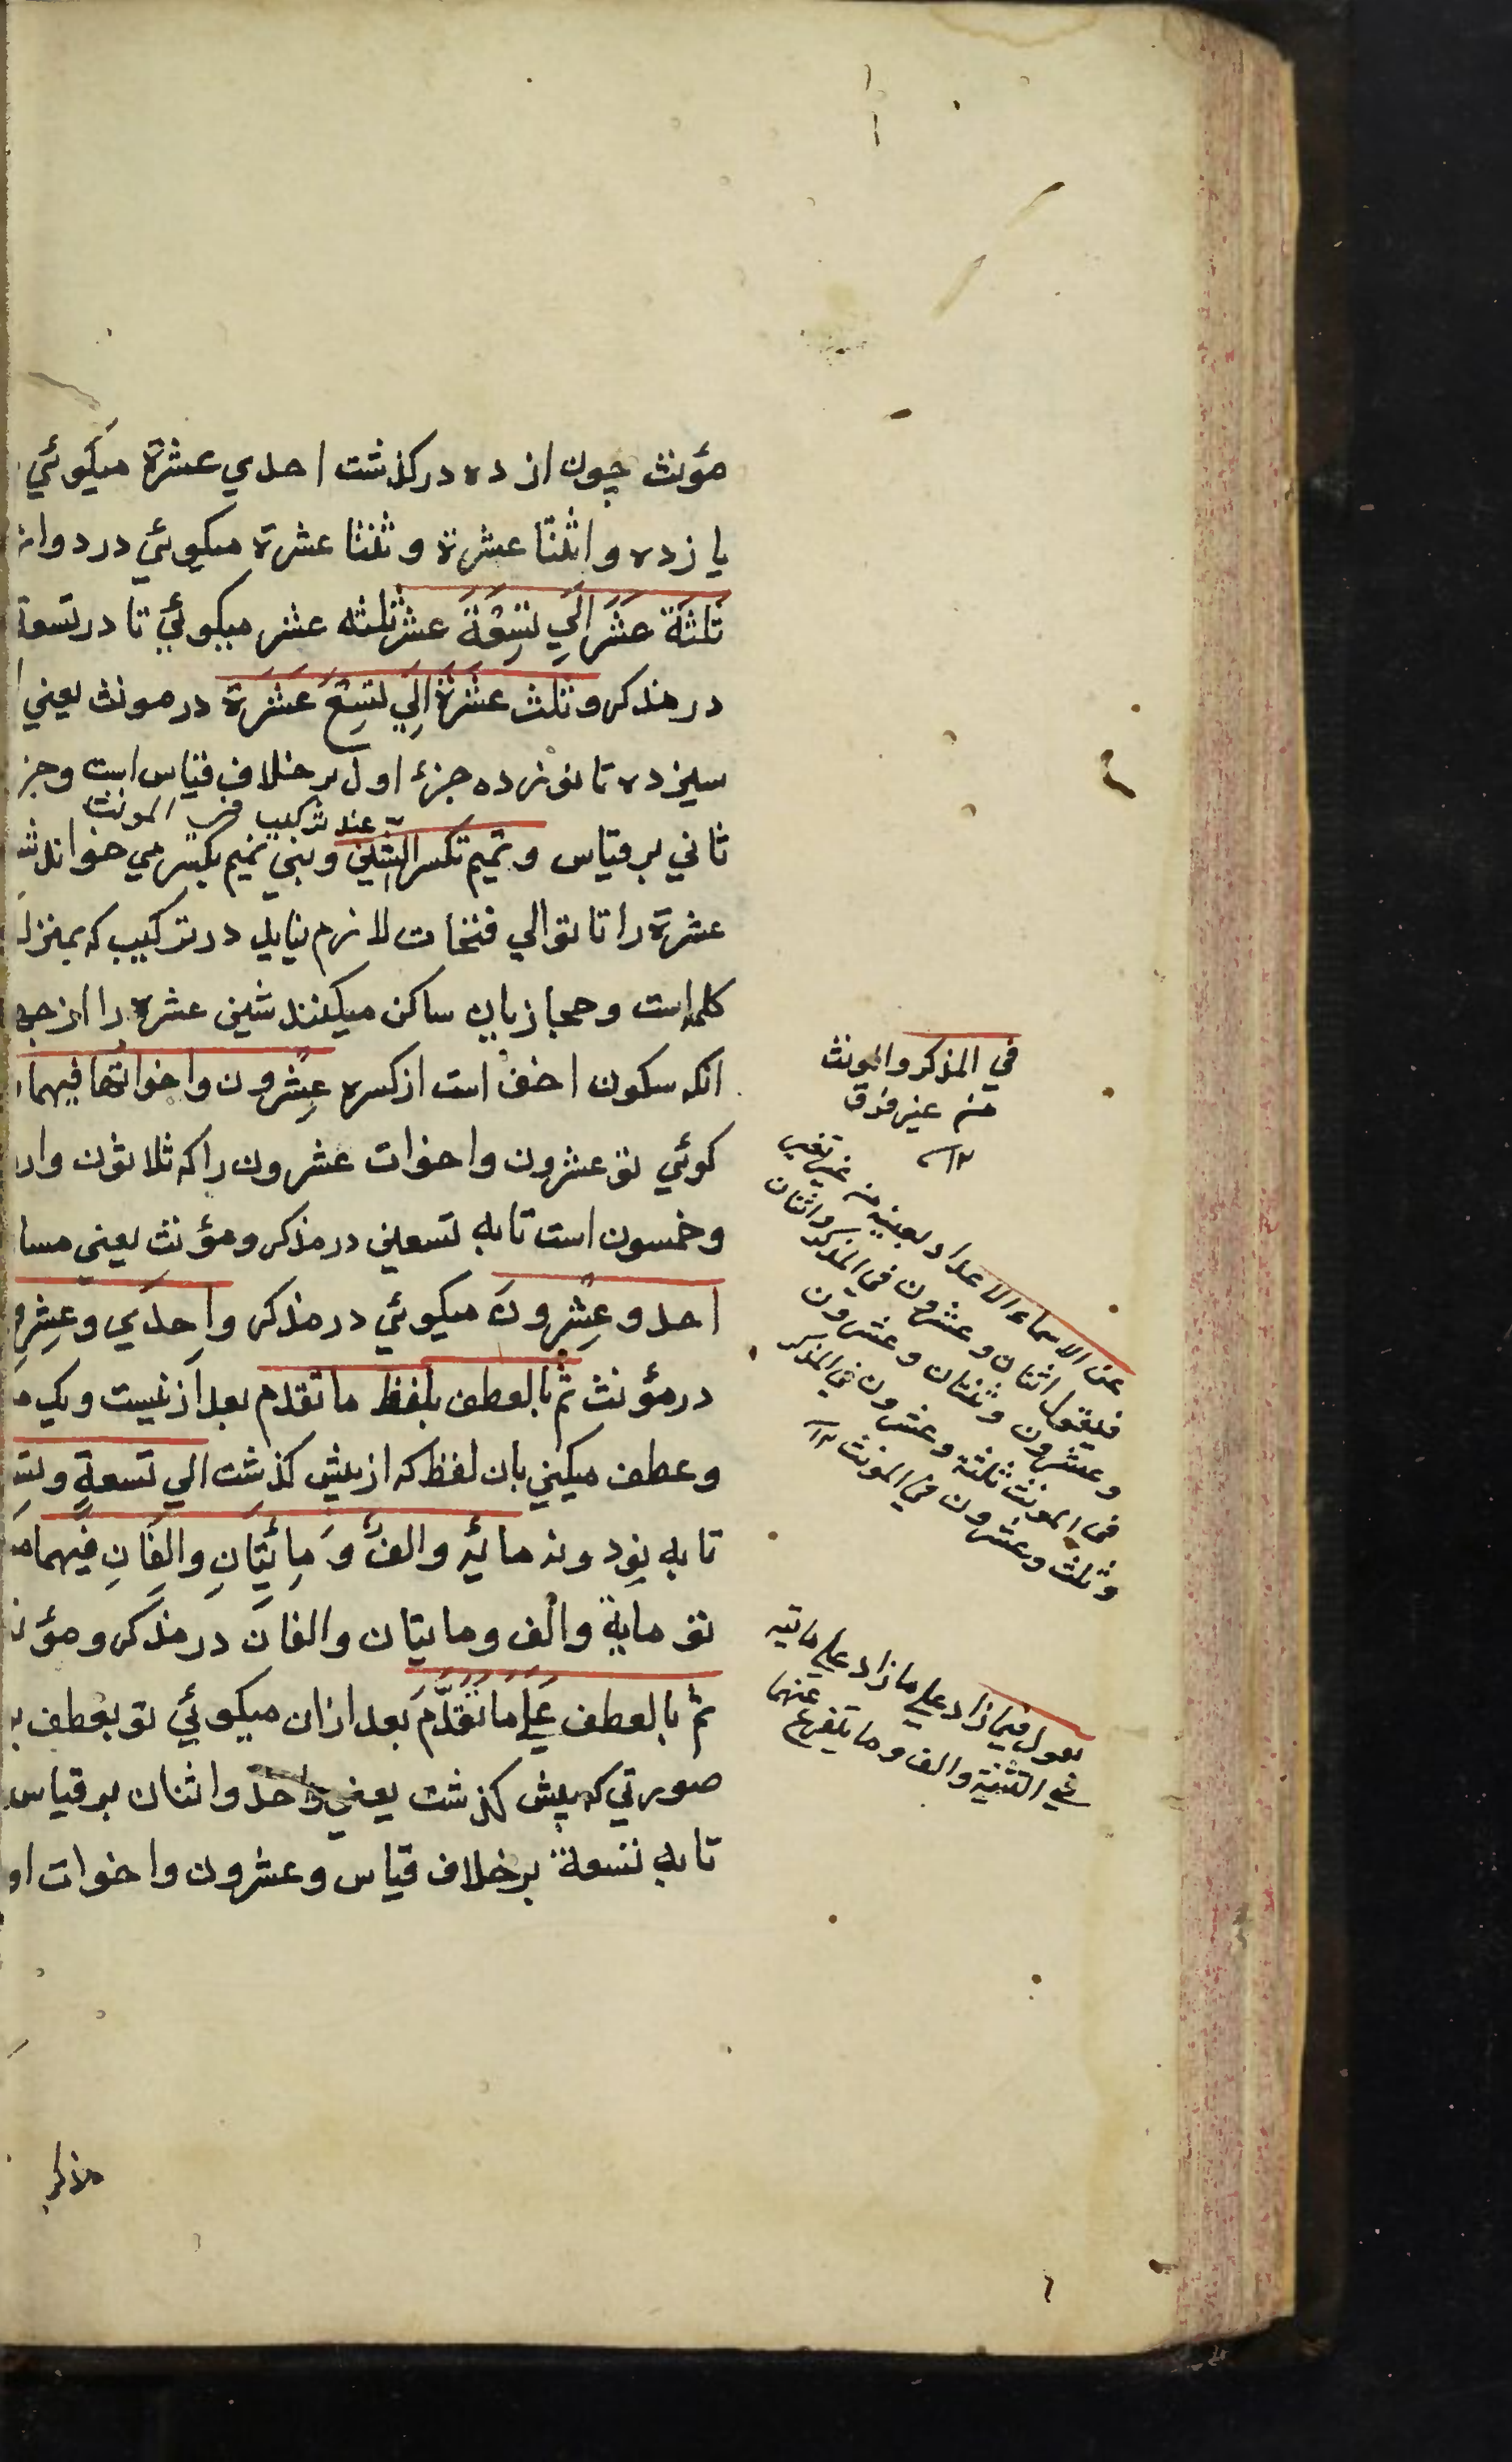 مؤنث چون از ده درکذشت احدي عشرة میکوئي
یا زده و اثنتا عشرة و ثنتا عشرة میکوئي در دوا
ثَلثَةَ عَشَرَ الَي تِسْعَةَ عشر ثلثه عشر میکوئي تا در تسعة
در مذکر و ثلث عَشَرَةَ اِلَي تِسْعَ عَشَرَة در مونث یعني
سیزده تا نوزده جزء اول بر خلاف قیاس است وجز
عند ترکیب المونث
ثاني بر قیاس و تمیم تکسر الشین وبني تمیم بکسر مي خوانند
عشرة را تا توالي فتحات لازم نیاید در ترکیب که بمنزل
کلمه است و حجازیان ساکن میکنند شین عشره را از جه
انکه سکون اخف است از کسره عِشرون واخواتُها فیهما
کوئي تو عشرون واخوات عشرون را که ثلاثون وار
و خمسون است تا به تسعین در مذکر و مؤنث یعني مسا
احد و عِشرونَ میکوئي در مذکر واِحدَي وعِشر
در مؤنث ثم بالعطف بلفظ ما تقدم بعد از بیست ویک
وعطف میکني بان لفظ که از پیش کذشت الي تسعةٍ وتس
تا به نود ونه مائه والف وَ مِائتَانِ والفَانِ فیهما
تو مایة والف ومایتان والفان در مذکر و مؤن
ثم بالعطف عَلَي مَا تَقَدَّمَ بعد ازان میکوئي تو بعطف بر
صورتي که پیش کذشت یعني واحد واثنان بر قیاس
تا به تسعة برخلاف قیاس وعشرون واخوات او
مذکر
في المذکر والمونث
من غیر فرق
۱۲
عن الاسماء الاعداد بعینه من غیر تغیر
فیقول اثنان وعشرون في المذکر واثنتان
وعشرون وثنتان وعشرون
في المونث ثلثة وعشرون في المذکر
وثلث وعشرون في المونث ۱۲
فیما زاد علي ما زاد علي مایه
والف وما یتفرع عنهما